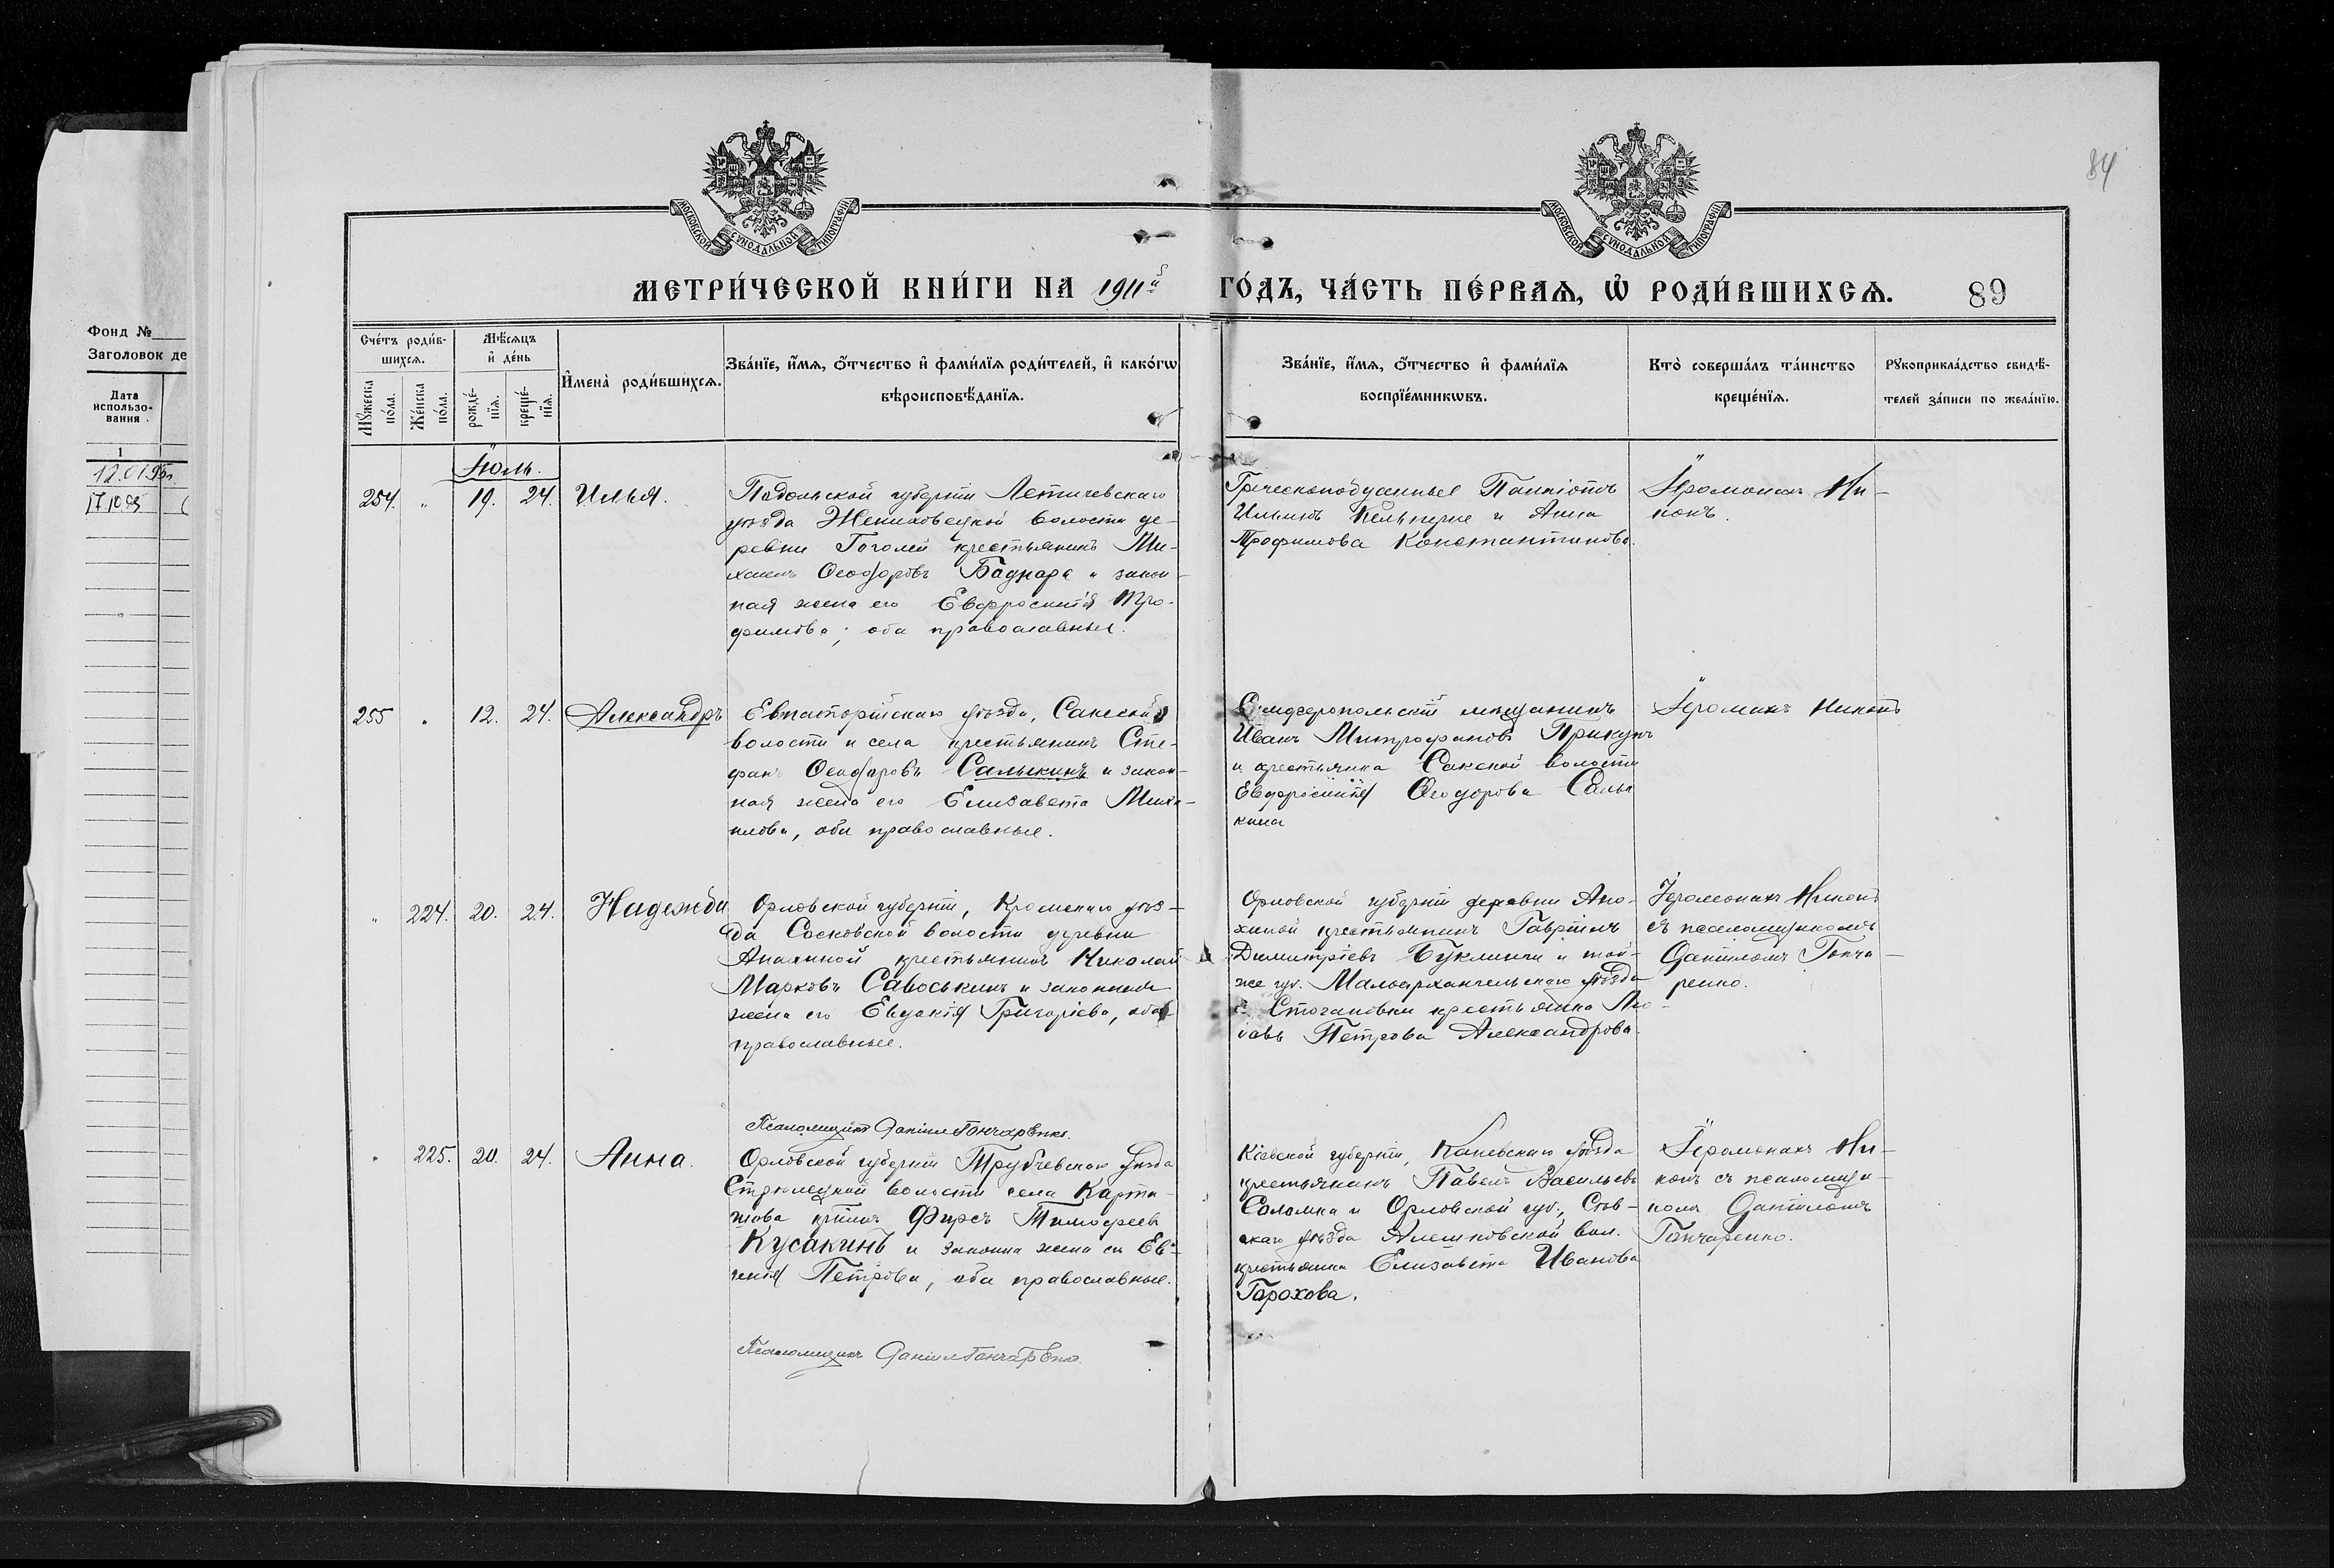 84
МОСКОВСКОЙ СѴНОДАЛЬНОЙ ТИПОГРАФІИ
МОСКОВСКОЙ СѴНОДАЛЬНОЙ ТИПОГРАФІИ
МЕТРИ́ЧЕСКОЙ КНИ́ГИ НА 1911й ГО́ДЪ, ЧА́СТЬ ПЕ́РВАѦ, Ѡ҆ РОДИ́ВШИХСѦ.
89
Фонд №
Заголовок де
Дата
использо-
вания
1
12.01.95г.
17.10.95
Сче́тъ роди́в-
шихсѧ.
Мꙋ́жеска по́ла.
Же́нска по́ла.
Мѣ́сѧцъ
и҆ де́нь
рожде́-
нїѧ.
креще́-
нїѧ.
И҆мена̀ роди́вшихсѧ.
Зва́нїе, и҆́мѧ, ѻ҆́тчество и҆ фами́лїѧ роди́телей, и҆ како́гѡ
вѣроисповѣ́данїѧ.
Зва́нїе, и҆́мѧ, ѻ҆́тчество и҆ фами́лїѧ
воспрїе́мникѡвъ.
Кто̀ соверша́лъ та́инство
креще́нїѧ.
Рꙋкоприкла́дство свидѣ́-
телей за́писи по жела́нїю.
Іюль.
254. " 19. 24. Илья.
Подольской губерніи Летичевскаго
уѣзда Женишковецкой волости де-
ревни Гоголей крестьянинъ Ми-
хаилъ Ѳеодоровъ Баднара и закон-
ная жена его Евфросинія Тро-
фимова; оба православные.
Греческоподданные Панаіотъ
Ильинъ и Анна
Трофимова Константинова.
Іеромонахъ Ни-
конъ.
255 " 12. 24. Александръ
Евпаторійскаго уѣзда, Сакской
волости и села крестьянинъ Сте-
фанъ Ѳеодоровъ Салыкинъ и закон-
ная жена его Елизавета Миха-
илова, оба православные.
Симферопольскій мѣщанинъ
Иванъ Митрофановъ Прикуръ
и крестьянка Сакской волости
Евфросинія Ѳеодорова Салы
кина
Іеромонахъ Никонъ
" 224. 20. 24. Надежда
Орловской губерніи, Кромскаго уѣз-
да Сосковской волости деревни
Апалиной крестьянинъ Николай
Марковъ Савоськинъ и законная
жена его Евдокія Григоріева, оба
православные.
Орловской губерніи деревни Апо-
хиной крестьянинъ Гавріилъ
Димитріевъ и той-
же губ. Малоархангельскаго уѣзда
с. Стогановки крестьянка Лю-
бовь Петрова Александрова.
Іеромонахъ Никонъ
съ псаломщикомъ
Даніиломъ Гонча-
ренко.
Псаломщикъ Даніилъ Гончаренко.
" 225. 20. 24. Анна.
Орловской губерніи Трубчевскаго уѣзда
Стрѣлецкой волости села Карта-
шова кр-нинъ Фирсъ Тимофеевъ
Кусакинъ и законная жена его Ев-
генія Петрова, оба православные.
Кіевской губерніи, Каневскаго уѣзда
крестьянинъ Павелъ Васильевъ
Соломка и Орловской губ., Сѣв-
скаго уѣзда Алешковской вол.
крестьянка Елизавета Иванова
Горохова.
Іеромонахъ Ни-
конъ съ псаломщи-
комъ Даніиломъ
Гончаренко.
Псаломщикъ Даніилъ Гончаренко.